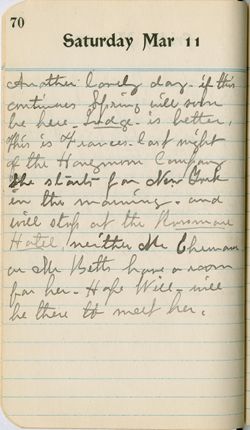 70
Saturday Mar 11
Another lovely day - if this
continues Spring will soon
be here - Lodge - is better,
This is Frances - last night
of the Honeymoon Company
She starts for New York
in the morning - and
will stop at the
Hotel, neither Mr
or Mr Betts have a room
for her - Hope Will - will
be there to meet her.